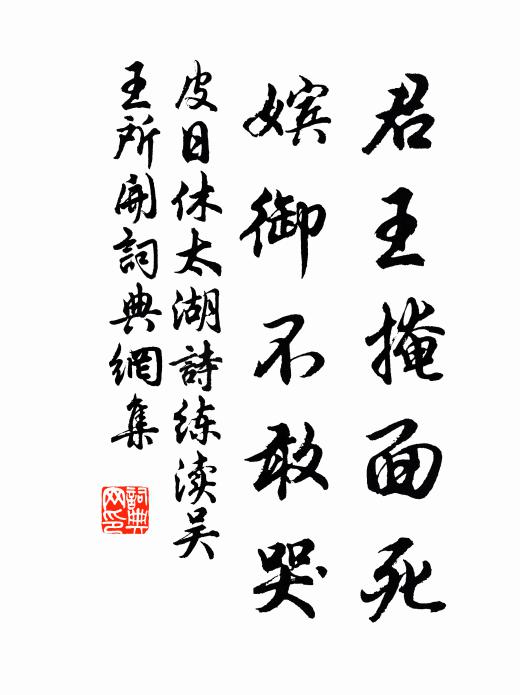 君王掩面死
嬪御不敢哭
皮日休太湖詩练渎吴
王所開詞典網集
詞典
网印